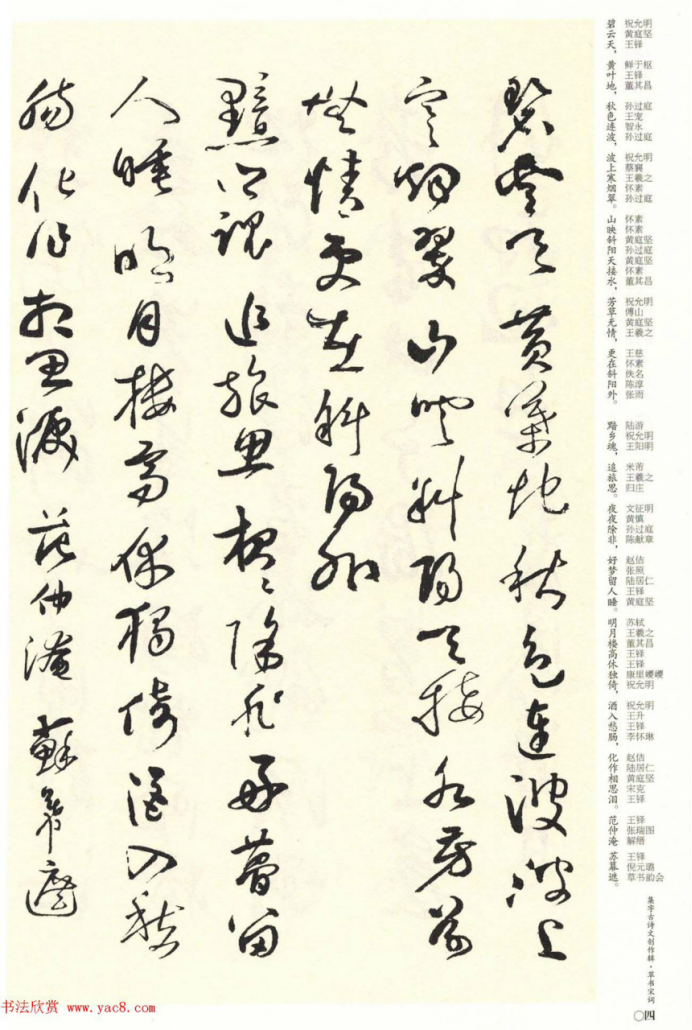 碧云天黄叶地秋色连波波上
寒烟翠山映斜阳天接水芳草
无情更在斜阳外
黯乡魂追旅思夜夜除非好梦留
人睡明月楼高休独倚酒入愁
肠化作相思泪范仲淹苏幕遮
碧云天，黄叶地，秋色连波，波上寒烟翠。山映斜阳天接水，芳草无情，更在斜阳外。
黯乡魂，追旅思。夜夜除非，好梦留人睡。明月楼高休独倚，酒入愁肠，化作相思泪。范仲淹 苏幕遮。
祝允明
黄庭坚
王铎
鲜于枢
王铎
董其昌
孙过庭
王宠
智永
孙过庭
祝允明
蔡襄
王羲之
怀素
孙过庭
怀素
怀素
黄庭坚
孙过庭
黄庭坚
怀素
董其昌
祝允明
傅山
黄庭坚
王羲之
王慈
怀素
佚名
陈淳
张雨
陆游
祝允明
王阳明
米芾
王羲之
归庄
文征明
黄慎
孙过庭
陈献章
赵佶
张照
陆居仁
王铎
黄庭坚
苏轼
王羲之
董其昌
王铎
王铎
康里巎巎
祝允明
祝允明
王升
王铎
李怀琳
赵佶
陆居仁
黄庭坚
宋克
王铎
王铎
张瑞图
解缙
王铎
倪元璐
草书韵会
集字古诗文创作辑·草书宋词
〇四
书法欣赏 www.yac8.com